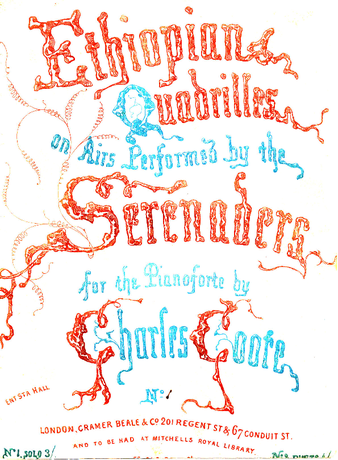 Ethiopian
Quadrilles
on Airs Performed by the
Serenaders
for the Pianoforte by
Charles Coote
No. 1
ENT STA HALL
LONDON, CRAMER BEALE & CO 201 REGENT ST & 67 CONDUIT ST.
AND TO BE HAD AT MITCHELLS ROYAL LIBRARY.
No 1, SOLO 3/